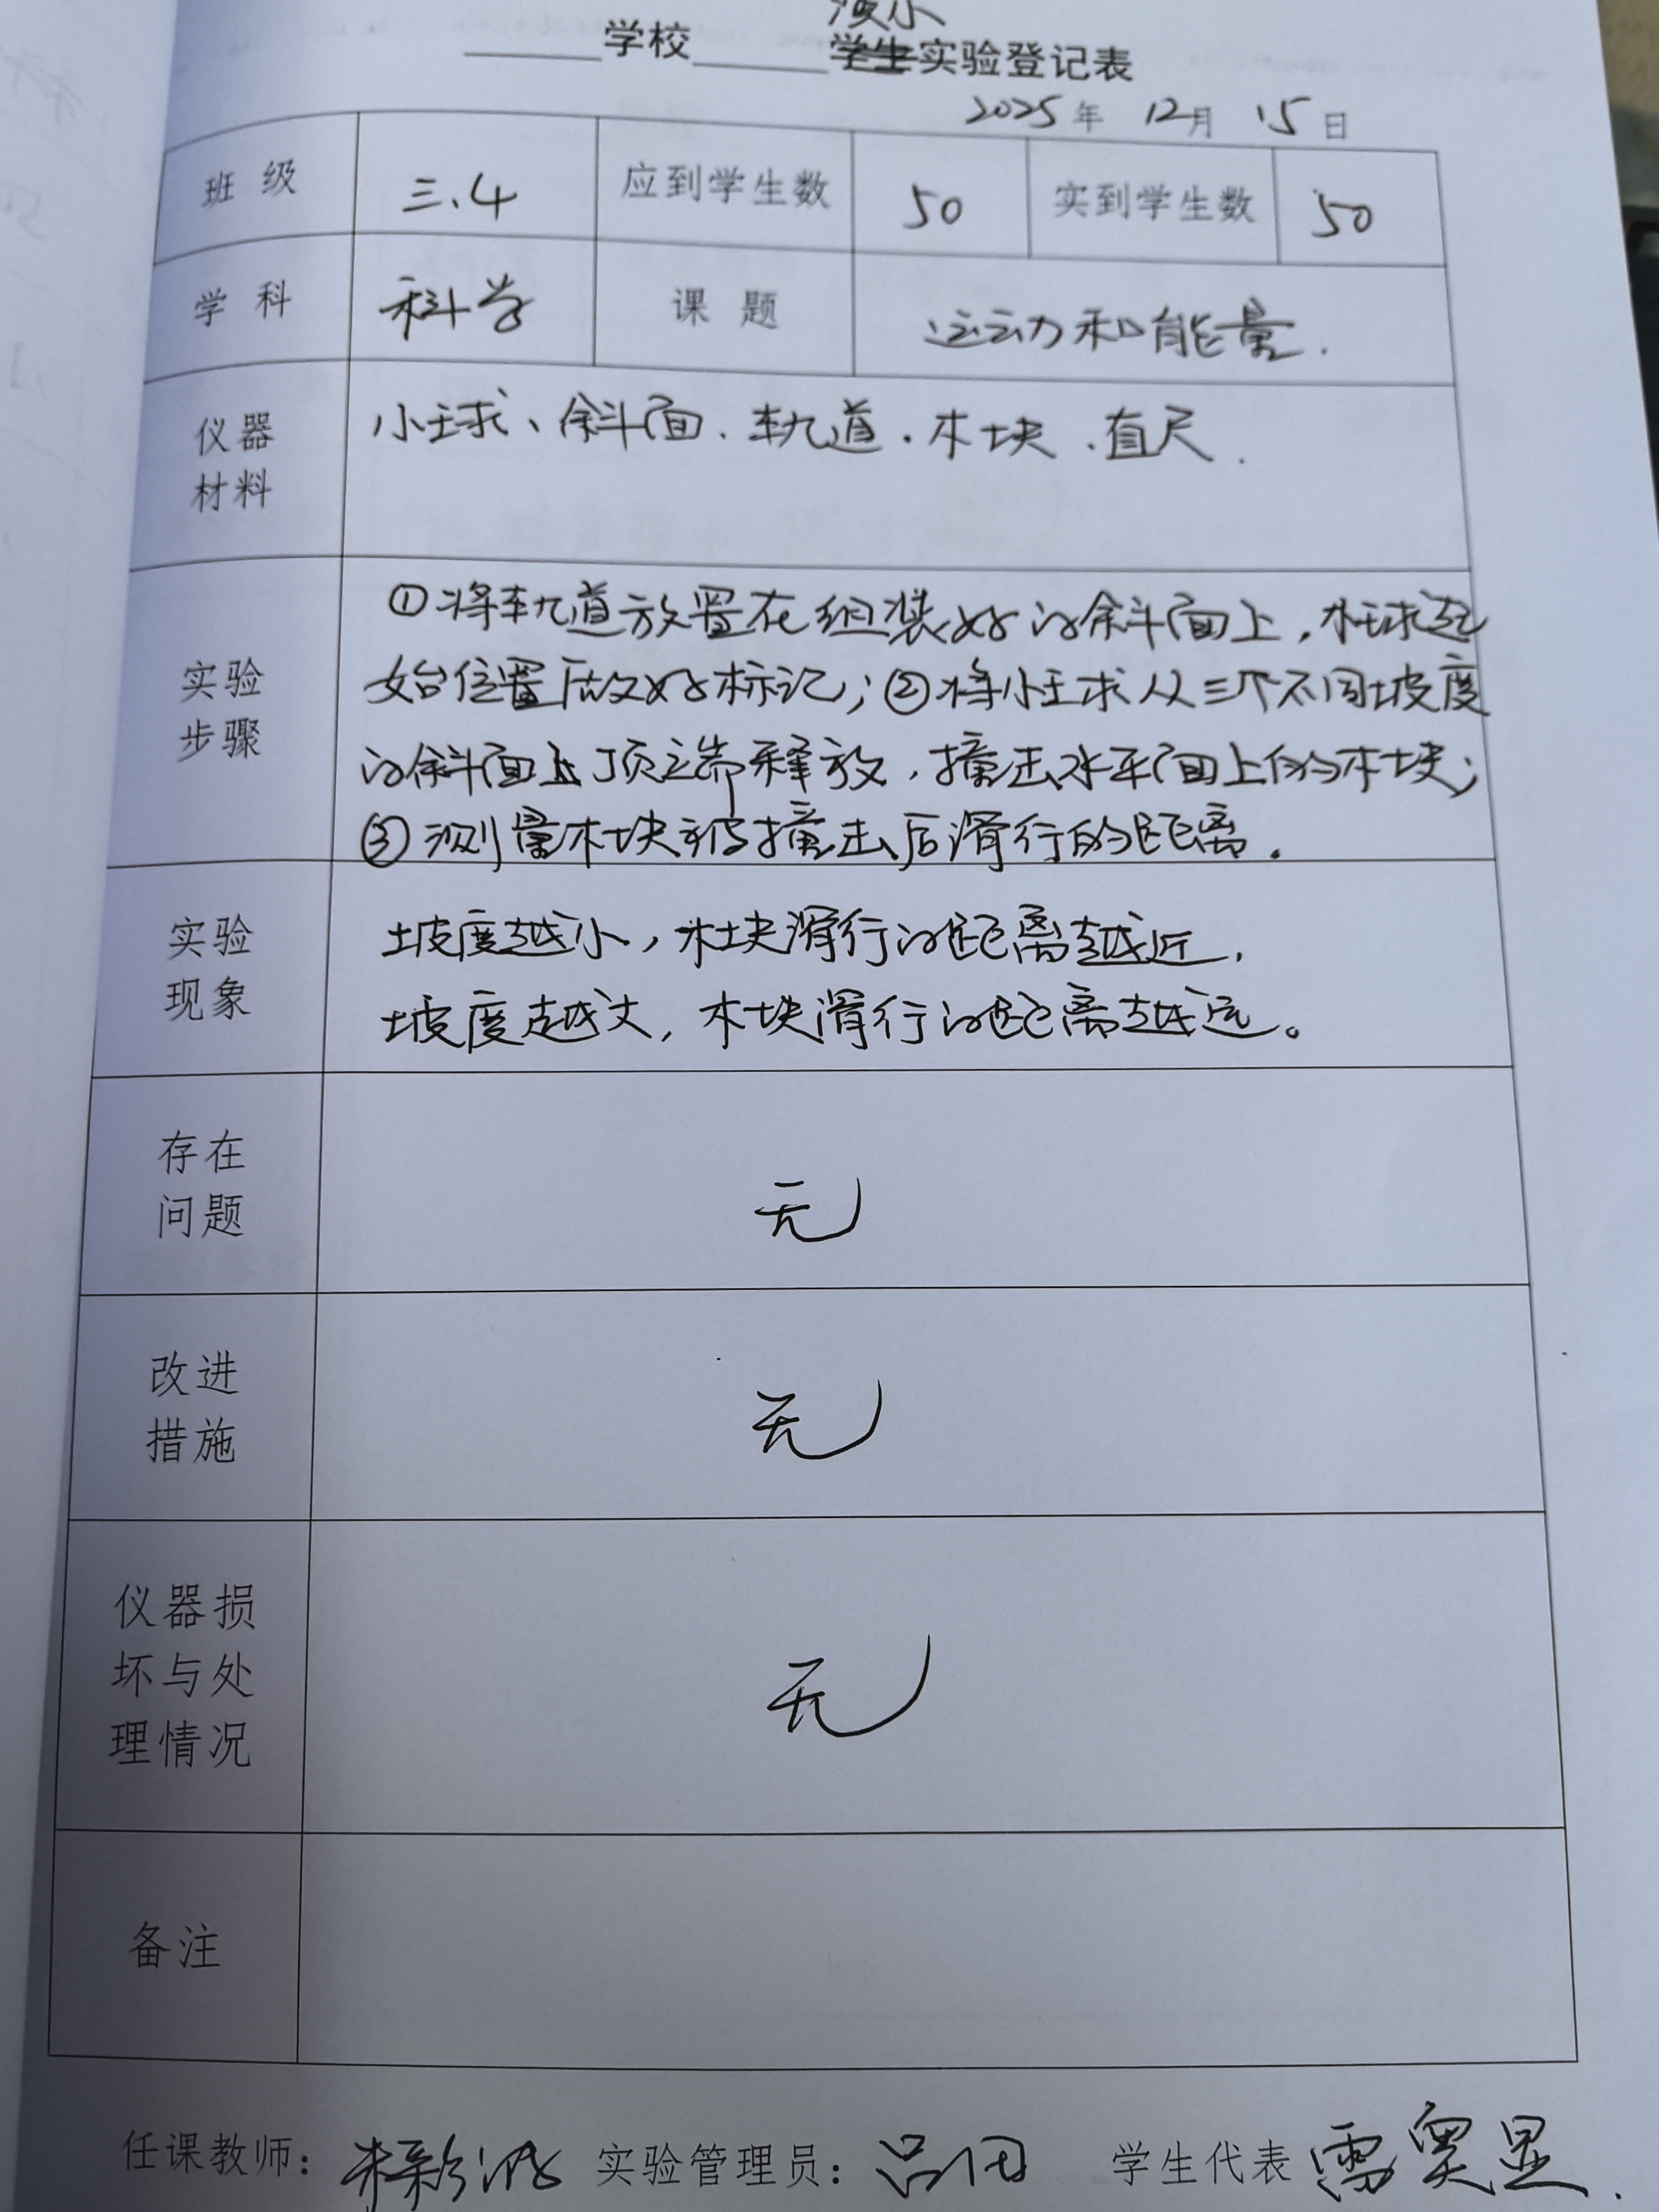 演示
学校 学生实验登记表
2025年 12月 15日
班 级 三.4 应到学生数 50 实到学生数 50
学 科 科学 课 题 运动和能量.
仪器
材料
小球、斜面、轨道、木块、直尺.
实验
步骤
①将轨道放置在组装好的斜面上,在球起
始位置做好标记;②将小球从三个不同坡度
的斜面上顶端释放,撞击水平面上的木块;
③测量木块被撞击后滑行的距离。
实验
现象
坡度越小,木块滑行的距离越近,
坡度越大,木块滑行的距离越远。
存在
问题
无
改进
措施
无
仪器损
坏与处
理情况
无
备注
任课教师: 实验管理员: 学生代表